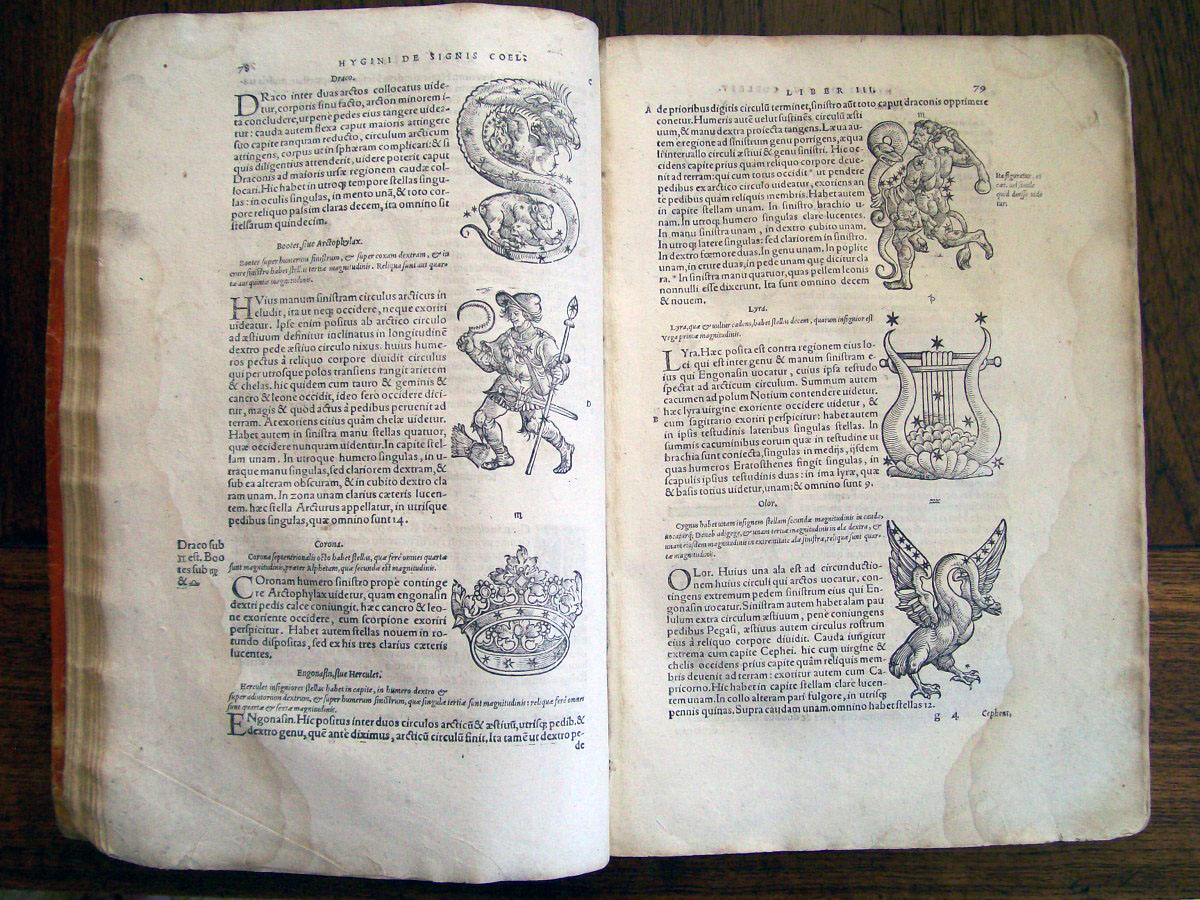 78
HYGINI DE SIGNIS COEL:
Draco.
DRaco inter duas arctos collocatus uide-
tur, corporis sinu facto, arcton minorem i-
ta concludere, ut penè pedes eius tangere uidea-
tur: cauda autem flexa caput maioris attingere
suto capite tanquam reducto, circulum arcticum
attingens, corpus ut in sphæram complicari: & si
quis diligentius attenderit, uidere poterit caput
Draconis ad maioris ursæ regionem caudæ col-
locari. Hic habet in utroq; tempore stellas singu-
las: in oculis singulas, in mento unâ, & toto cor-
pore reliquo passim claras decem, ita omnino sit
stellarum quindecim.
C
Bootes, siue Arctophylax.
Bootes super humerum sinistrum, & super coxam dextram, & in
crure sinistro habet stellas tertiæ magnitudinis. Reliquæ sunt aut quar-
tæ aut quintæ magnitudinis.
HVius manum sinistram circulus arcticus in
cludit, ita ut neq; occidere, neque exoriri
uideatur. Ipse enim positus ab arctico circulo
ad æstiuum definitur inclinatus in longitudinẽ
dextro pede æstiuo circulo nixus. huius hume-
ros pectus à reliquo corpore diuidit circulus
qui per utrosque polos transiens tangit arietem
& chelas. hic quidem cum tauro & geminis &
cancro & leone occidit, ideo serò occidere dici-
tur, magis & quòd actus à pedibus peruenit ad
terram. At exoriens citius quàm chelæ uidetur.
Habet autem in sinistra manu stellas quatuor,
quæ occidere nunquam uidentur. In capite stel-
lam unam. In utroque humero singulas, in u-
traque manu singulas, sed clariorem dextram, &
sub ea alteram obscuram, & in cubito dextro cla
ram unam. In zona unam clarius cæteris lucen-
tem. hæc stella Arcturus appellatur, in utrisque
pedibus singulas, quæ omnino sunt 14.
D
Draco sub
est. Boo
tes sub
&
Corona.
Corona septentrionalis octo habet stellas, quæ ferè omnes quartæ
sunt magnitudinis, præter Alphetam, quæ secundæ est magnitudinis.
COronam humero sinistro propè continge
re Arctophylax uidetur, quam engonasin
dextri pedis calce coniungit. hæc cancro & leo-
ne exoriente occidere, cum scorpione exoriri
perspicitur. Habet autem stellas nouem in ro-
tundo dispositas, sed ex his tres clarius cæteris
lucentes.
Engonasin, siue Hercules.
Hercules insigniores stellas habet in capite, in humero dextro &
super adiutorium dextrum, & super humerum sinistrum, quæ singulæ tertiæ sunt magnitudinis: reliquæ ferè omnes
sunt quartæ & sextæ magnitudinis.
ENgonasin. Hic positus inter duos circulos arcticũ & æstiuũ, utrisq; pedib. &
dextro genu, quẽ antè diximus, arcticũ circulũ finit. Ita tamẽ ut dextro pe-
de
LIBER III.
79
A de prioribus digitis circulũ terminet, sinistro aũt toto caput draconis opprimere
conetur. Humeris autẽ uelut sustinẽs circulũ æsti
uum, & manu dextra proiecta tangens. Læua au-
tem è regione ad sinistrum genu porrigens, æqua
li interuallo circuli æstiui & genu sinistri. Hic oc-
cidens capite prius quàm reliquo corpore deue-
nit ad terram: qui cum totus occidit* ut pendere
pedibus ex arctico circulo uideatur, exoriens an
te pedibus quàm reliquis membris. Habet autem
in capite stellam unam. In sinistro brachio u-
nam. In utroq; humero singulas clare lucentes.
In manu sinistra unam, in dextro cubito unam.
In utroq; latere singulas: sed clariorem in sinistro.
In dextro fœmore duas. In genu unam. In poplite
unam, in crure duas, in pede unam quę dicitur cla
ra. * In sinistra manu quatuor, quas pellem leonis
nonnulli esse dixerunt. Ita sunt omnino decem
& nouem.
Lyra.
Lyra, quæ & uultur cadens, habet stellas decem, quarum insignior est
Vega primæ magnitudinis.
LYra. Hæc posita est contra regionem eius lo-
ci qui est inter genu & manum sinistram e-
ius qui Engonasin uocatur, cuius ipsa testudo
spectat ad arcticum circulum. Summum autem
cacumen ad polum Notium contendere uidetur.
hæc lyra uirgine exoriente occidere uidetur, &
B cum sagittario exoriri perspicitur: habet autem
in ipsis testudinis lateribus singulas stellas. In
summis cacuminibus eorum quæ in testudine ut
brachia sunt coniecta, singulas in medijs, ijsdem
quas humeros Eratosthenes fingit singulas, in
scapulis ipsius testudinis duas: in ima lyræ, quæ
& basis totius uidetur, unam: & omnino sunt 9.
Olor.
Cygnus habet unam insignem stellam secundæ magnitudinis in cauda,
uocaturq; Deneb adigege, & unam tertiæ magnitudinis in ala dextra, &
unam eiusdem magnitudinis in extremitate alæ sinistræ, reliquæ sunt quar-
tæ magnitudinis.
OLor. Huius una ala est ad circunductio-
nem huius circuli qui arctos uocatur, con-
tingens extremum pedem sinistrum eius qui En-
gonasin uocatur. Sinistram autem habet alam pau
lulum extra circulum æstiuum, penè coniungens
pedibus Pegasi, æstiuus autem circulus rostrum
eius à reliquo corpore diuidit. Cauda iungitur
extrema cum capite Cephei. hic cum uirgine &
chelis occidens prius capite quàm reliquis mem-
bris deuenit ad terram: exoritur autem cum Ca-
pricorno. Hic habet in capite stellam clare lucen-
tem unam. In collo alteram pari fulgore, in utrisq;
pennis quinas. Supra caudam unam. omnino habet stellas 12.
g 4 Cepheus,